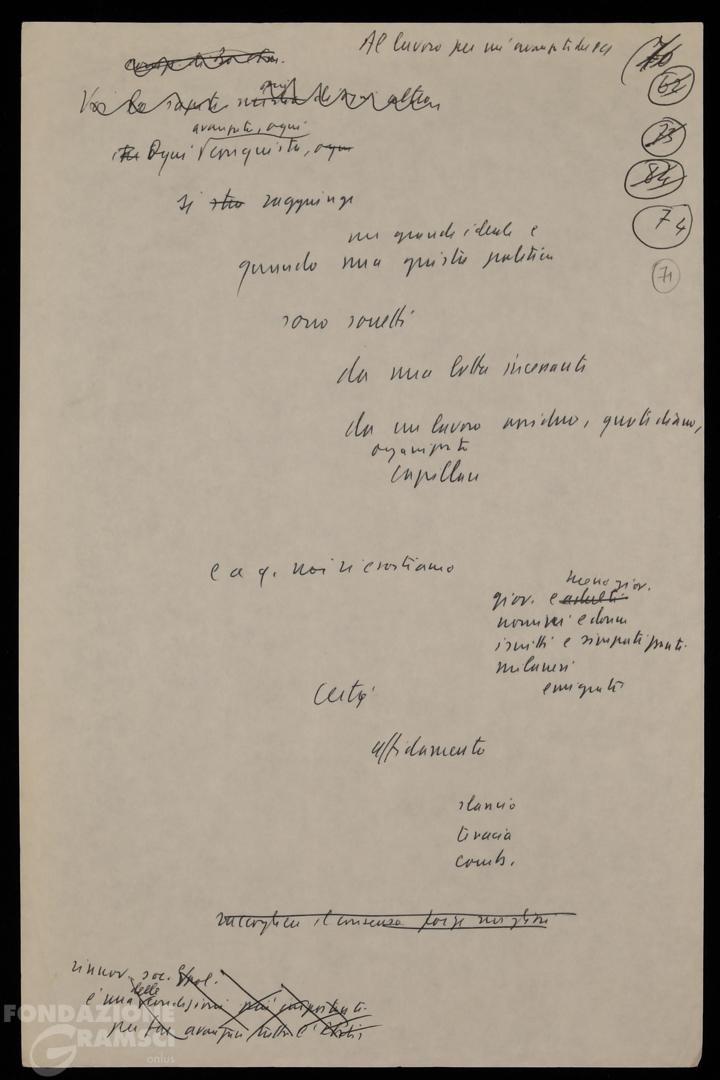 Al lavoro per un'avanzata della
76
62
73
84
74
71
avanzata, ogni
Ogni conquista, ogni
si sta raggiunge
un grande ideale e
quando una giusta politica
sono sorretti
da una lotta incessante
da un lavoro assiduo, quotidiano,
organizzato
capillare
e a q. noi vi esortiamo
meno giov.
giov. e adulti
uomini e donne
iscritti e simpatizzanti
milanesi
emigrati
Certi
affidamento
slancio
tenacia
comb.
raccogliere il consenso forze migliori
rinnov. soc. e pol.
delle
è una condizioni più importanti
per far avanzare tutta l'
FONDAZIONE
GRAMSCI
onlus